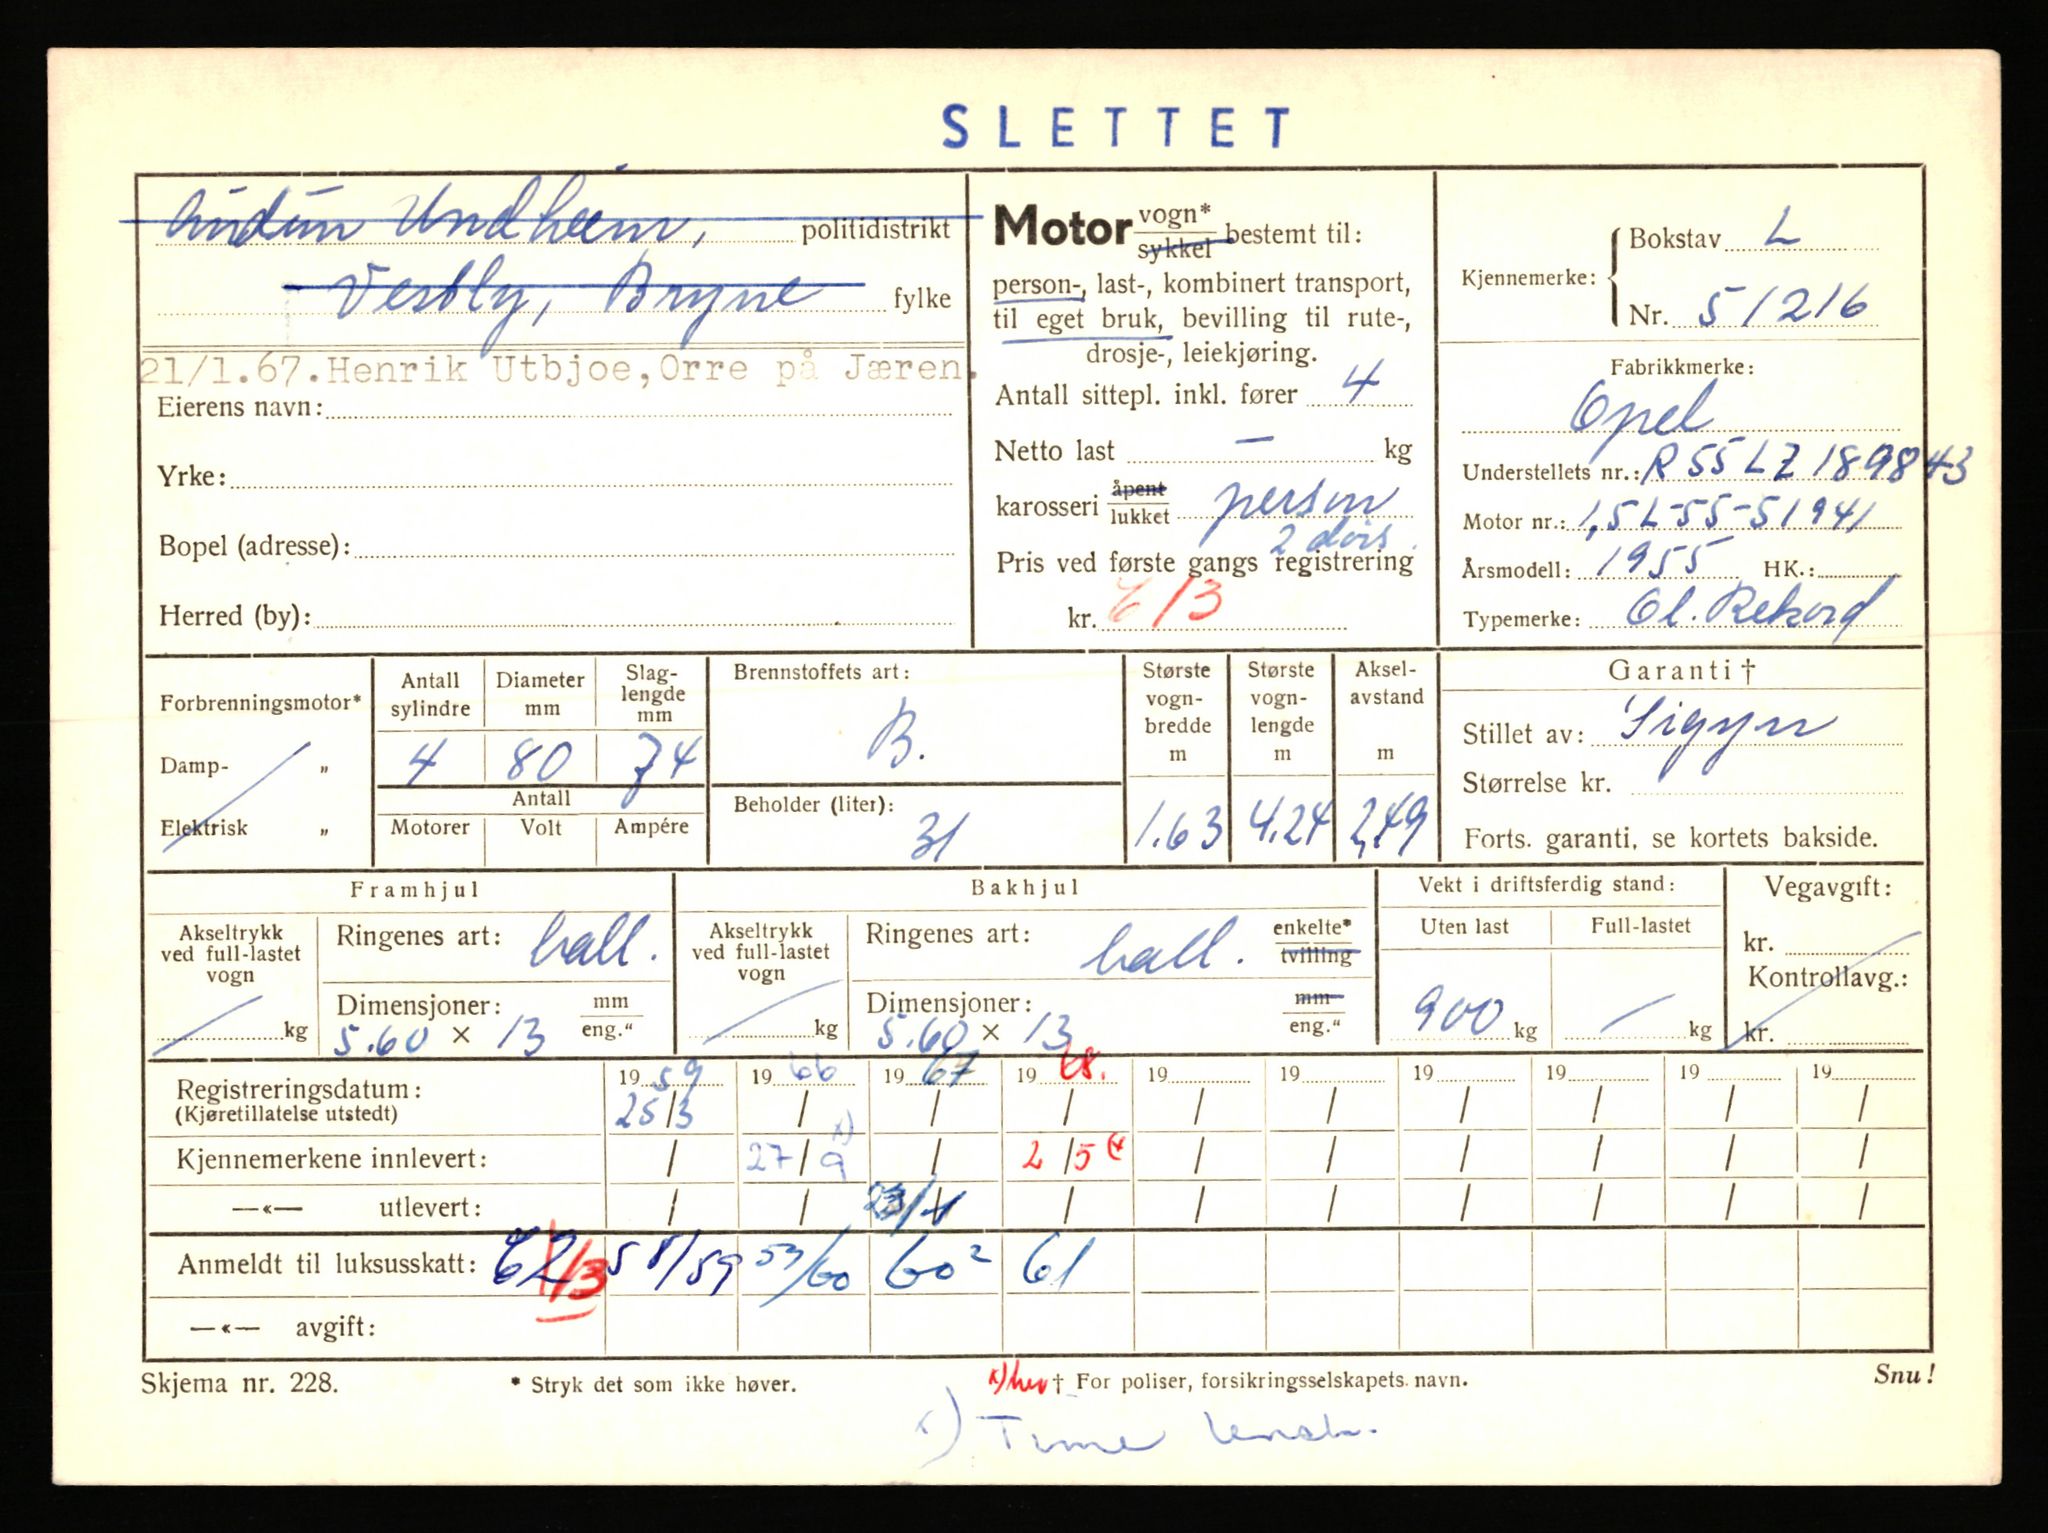 SLETTET
Audun Undheim, politidistrikt
Vestly, Bryne fylke
21/1.67. Henrik Utbjoe, Orre på Jæren.
Eierens navn:
Yrke:
Bopel (adresse):
Herred (by):
Motor vogn* sykkel bestemt til:
person-, last-, kombinert transport,
til eget bruk, bevilling til rute-,
drosje-, leiekjøring.
Antall sittepl. inkl. fører 4
Netto last — kg
karosseri åpent lukket person
2 dørs.
Pris ved første gangs registrering
kr.
Kjennemerke: Bokstav L
Nr. 51216
Fabrikkmerke:
Opel
Understellets nr.: R 55 LZ 189843
Motor nr.: 1,5L-55-51941
Årsmodell: 1955 HK.:
Typemerke: Ol. Rekord
Forbrenningsmotor*
Damp- „
Elektrisk „
Antall sylindre
Diameter mm
Slag-lengde mm
4 80 74
Antall
Motorer Volt Ampére
Brennstoffets art:
B.
Beholder (liter):
31
Største vogn-bredde m
1.63
Største vogn-lengde m
4.24
Aksel-avstand m
2,49
Garanti †
Stillet av: Sigyn
Størrelse kr.
Forts. garanti, se kortets bakside.
Framhjul
Akseltrykk ved full-lastet vogn
kg
Ringenes art: ball.
Dimensjoner: mm eng."
5.60 × 13
Bakhjul
Akseltrykk ved full-lastet vogn
kg
Ringenes art: ball. enkelte* tvilling
Dimensjoner: mm eng."
5.60 × 13
Vekt i driftsferdig stand:
Uten last Full-lastet
900 kg — kg
Vegavgift:
kr.
Kontrollavg.:
kr.
Registreringsdatum: 1959 1966 1967 1968. 19 19 19 19 19 19
(Kjøretillatelse utstedt) 25/3 / / / / / / / / /
Kjennemerkene innlevert: / 27/9 x) / 2/5 / / / / / /
—«— utlevert: / / / / / / / / /
Anmeldt til luksusskatt: 62 58/59 53/60 60² 61
—«— avgift:
Skjema nr. 228. * Stryk det som ikke høver. † For poliser, forsikringsselskapets navn. Snu!
x) Time lensk.